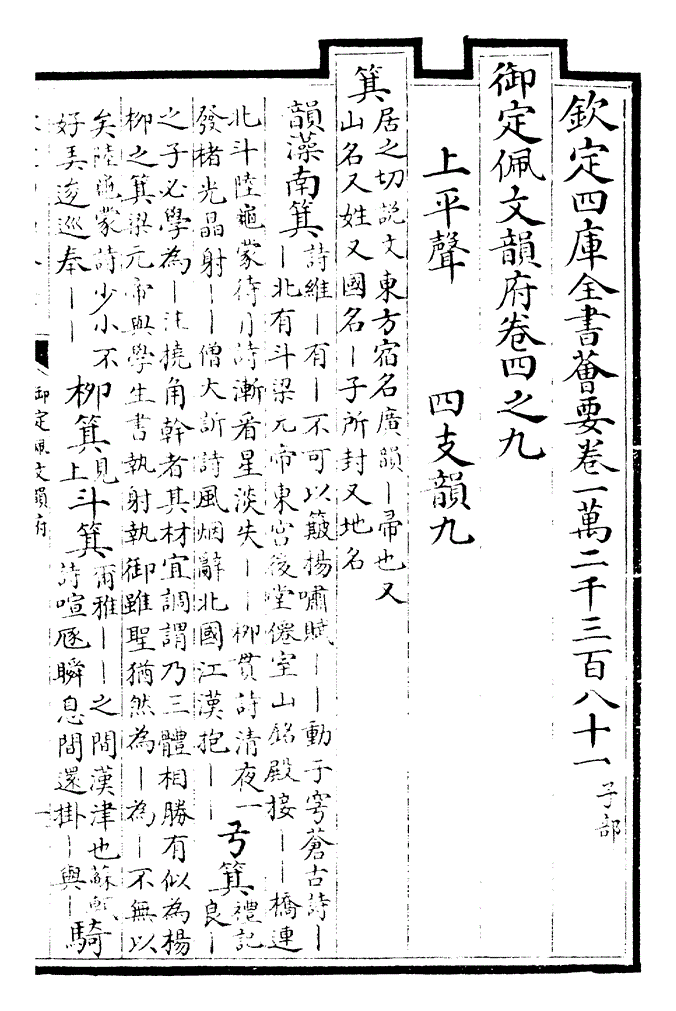 欽定四庫全書薈要卷一萬二千三百八十一 子部
御定佩文韻府卷四之九
上平聲 四支韻九
箕
居之切説文東方宿名廣韻｜帚也又
山名又姓又國名｜子所封又地名
韻藻南箕
詩維｜有｜不可以簸揚嘯賦｜｜動于穹蒼古詩｜
｜北有斗梁元帝東宮後堂僊室山銘殿接｜｜橋連
北斗陸龜蒙待月詩漸看星淡失｜｜柳貫詩清夜一
發楮光晶射｜｜僧大訢詩風烟辭北國江漢抱｜｜
弓箕
禮記
良｜
之子必學為｜注撓角幹者其材宜調謂乃三體相勝有似為楊
柳之箕梁元帝與學生書執射執御雖聖猶然為｜為｜不無以
矣陸龜蒙詩少小不
好弄逡巡奉｜｜
柳箕
見
上
斗箕
爾雅｜｜之間漢津也蘇軾
詩喧豗瞬息間還掛｜與｜
騎
御定佩文韻府
一